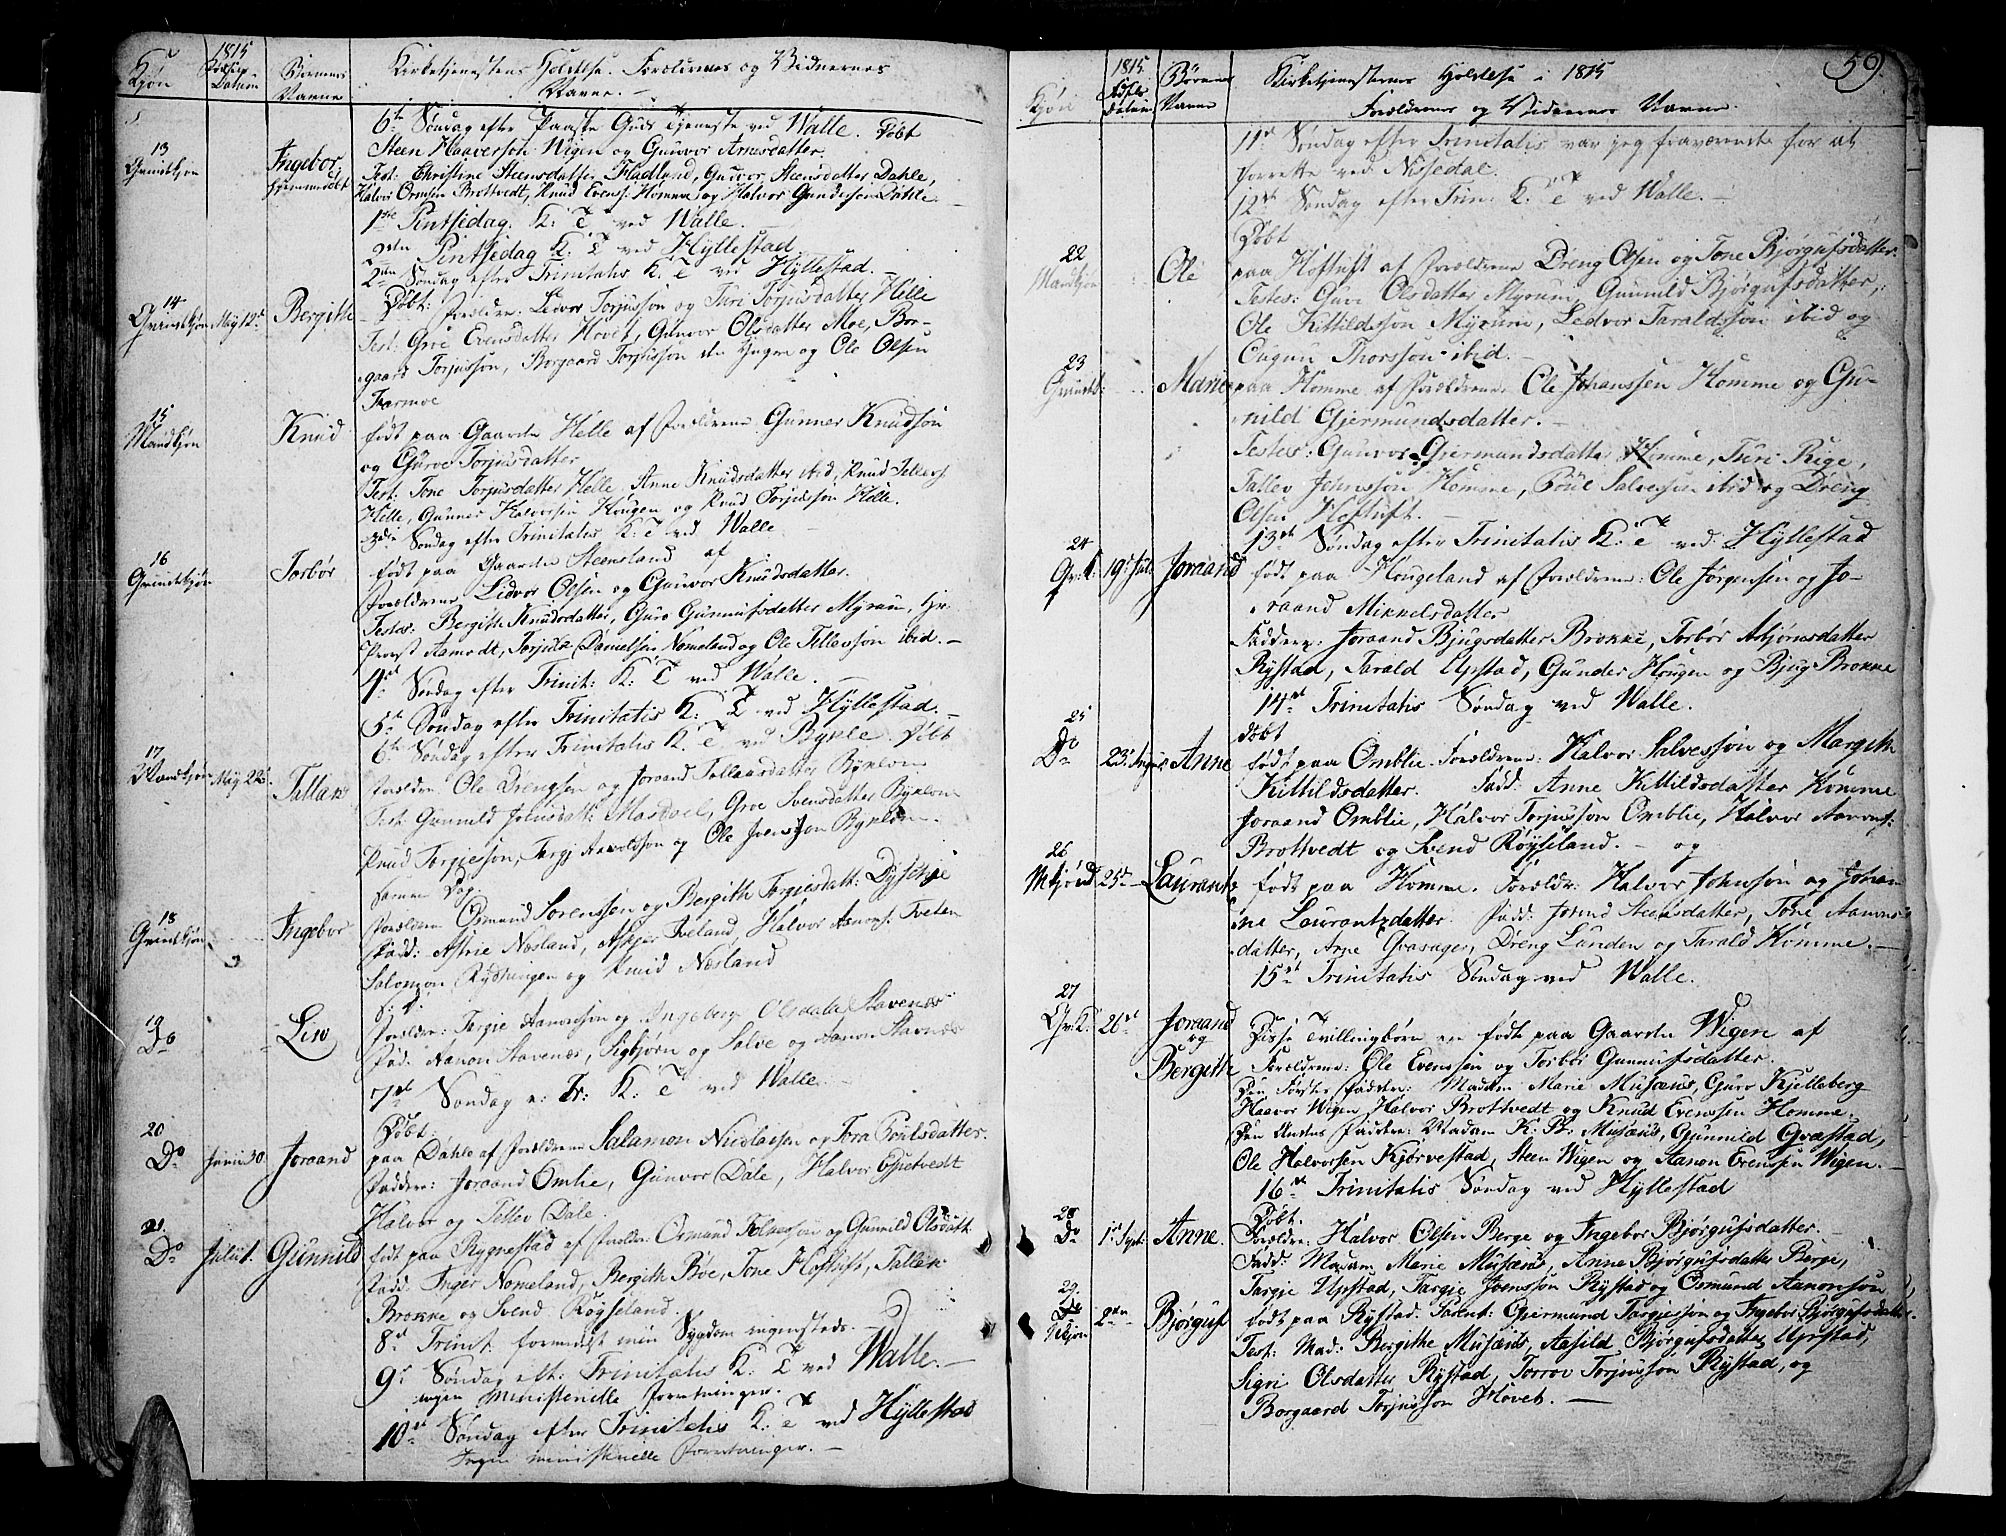 Kjøn
1815
Datum
Børnenes
Navne
Kirketjenestens Holdelse. Forældrenes og Vidnernes
Navne. —
6te Søndag efter Paaske Guds Tjeneste ved Walle. Døbt
13
Qvindekjøn
Ingebor
hjemmedøbt
Steen Haaverson Wigen og Gunvor Arnesdatter.
Test: Christine Steensdatter Fladlund, Gurvor Steensdatter Dahle,
Halvor Ormsen Brottvedt, Knud Evens: Homme og Halvor Gundersen Dahle. —
1ste Pintsedag. K: T ved Walle. —
2den Pintsedag K: T ved Hyllestad
2den Søndag efter Trinitatis K: T ved Hyllestad. —
14
Qvindekjøn May 12t
Bergithe
Døbt: Forældre: Lidvor Torjusson og Turi Torjusdatter Helle
Test: Groe Evensdatter Hovet, Gunvor Olsdatter Moe, Bor-
gaard Torjusson, Borgaard Torjusson den Yngre og Ole Olsen
Tharmoe
15
Mandkjøn
Knud
født paa Gaarden Helle af Forældrene Gunner Knudsøn
og Gurve Torjusdatter
Test: Tone Torjusdatter Helle, Anne Knudsdatter ibid, Knud Tellevs
Helle, Gunner Halvorsen Hougen og Knud Torjussøn Helle.
3die Søndag efter Trinitatis K: T ved Walle —
16
Qvindekjøn
Torbør
født paa Gaarden Steensland af
Forældrene Lidvor Olsen og Gunvor Knudsdatter.
Testes: Bergith Knudsdatter, Guro Gunnufsdatter Myrum, Hr.
Provst Aamodt, Torjus Danielsen Nomeland og Ole Tellevsøn ibid. —
4de Søndag efter Trinit: K: T ved Walle. —
5te Søndag efter Trinitatis K: T ved Hyllestad. —
6te Søndag efter Trinitatis K: T. ved Bykle. Døbt
17
Mandkjøn May 22
Tallak
Forældre: Ole Drengsen og Joraand Tallaksdatter Byklom
Test: Gunnild Jonsdatt: Mosdoel, Groe Svensdatter Byklom
Knud Torgiesøn, Targi Arnoldsøn og Ole Jvensson Byklom.
samme Dag.
18
Qvindekjøn
Ingebor
Forældre Osmund Sorensen og Bergith Torgiesdatt:
Fadd: Astrie Næsland, Askjer Tveland, Halvor Aanonss: Tveten
Salomon Rydningen og Knud Næsland
19
Do
Liv
Forældre: Targie Aanonssøn og Ingeborg Olsdatr Stavenæs
Fad: Aanon Stavenæs, Sigbjørn og Salve og Aanon Stavnæs
7de Søndag e: Tr: K: T ved Walle. —
20
Do Junii 30
Joraand
Døbt:
paa Dahle af Forældrene Salamon Nicolaisen og Tora Poulsdatter.
Faddere: Joraand Omlie, Gunvor Dale, Halvor Egietvedt
Halvor og Tellev Dale.
21
Do Julii 1.
Gunnild
født paa Rygnestad af Foræld: Osmund Folkessøn og Gunnild Olsdatt:
Fadd: Inger Nomeland, Bergith Bøe, Tone Hoftuft, Tallak
Brokke og Svend Røyseland.
8de Trinit. formedelst min Sygdom ingensteds. —
9de Søndag eft: Trinitatis K: T ved Walle. —
ingen Ministerielle Forretninger.
10de Søndag efter Trinitatis K: T ved Hyllestad
Ingen ministerielle Forretninger. —
59.
Kjøn
1815.
Datum
Børnenes
Navne
Kirketjenestens Holdelse i 1815
Forældrenes og Vidnernes Navne.
11te Søndag efter Trinitatis var jeg fraværende for at
forrette ved Nissedal.
12te Søndag efter Trin: K: T ved Walle. —
Døbt
22
Mandkjøn
Ole
paa Hoftuft af Forældrene Dreng Olsen og Tone Bjørgufsdatter.
Testes: Guro Olsdatter Myrum, Gunnild Bjørgufsdatter,
Ole Kittildssøn Myrum, Ledvor Taraldssøn ibid og
Thorssøn ibid. —
23
Qvindek:
Marie
paa Homme af Forældrene Ole Johanssen Homme og Gu-
nild Gjermundsdatter. —
Testes: Gunvor Gjermundsdatter Homme, Turi Rige,
Tallev Johnssøn Homme, Poul Salvessen ibid og Dreng
Olsen Hoftuft. —
13de Søndag efter Trinitatis K: T ved Hyllestad
24
Qv: k: 19d Juli
Joraand
født paa Hougeland af Forældrene: Ole Jørgensen og Jo-
raand Mikkelsdatter
Faddere: Joraand Bjugsdatter Brokke, Torbør Asbjørnsdatter
Rystad, Tarald Upstad, Gunder Hougen og Bjug Brokke
14de Trinitatis Søndag ved Walle.
25
Do 23d August
Anne
døbt
født paa Omblie. Forældrene: Halvor Salvessøn og Margith
Kittildsdatter. Fadd: Anne Kittildsdatter Homme
Joraand Omblie, Halvor Torjussøn Omblie, Halvor Aanons:
Brottvedt og Svend Røyseland. — og
26
Mkjønd 25d
Laurantz
født paa Homme. Forældr: Halvor Johnsøn og Johan
ne Laurantzdatter. Fadd: Jorind Steensdatter, Tone Aanons-
datter, Arne Qvasager, Dreng Lunden og Tarald Homme. —
15de Trinitatis Søndag ved Walle.
27
Qv: K: 26de
Joraand
og
Bergithe
Disse Tvillingbørn ere født paa Gaarden Wigen af
Forældrene: Ole Evenssen og Torbør Gunnufsdatter.
Den Førstes Faddere: Madam Marie Musæus, Guro Kjelleberg
Haavor Wigen Halvor Brottvedt og Knud Evenssen Homme.
Den Andens Faddere: Madam K. B. Musæus, Gunnild Qvæstad,
Ole Halvorsen Kjørvestad, Steen Wigen og Aanon Evenssen Wigen. —
16de Trinitatis Søndag ved Hyllestad
28
Do 1d Sept:
Anne.
Døbt.
Forældre: Halvor Olsen Berge og Ingebor Bjørgufsdatter
Fadd: Madam Marie Musæus, Anne Bjørgufsdatter Berge,
Targie Upstad, Targie Jvensson Rystad og Osmund Aanonsøn
29.
Mkjøn 2den
Bjørguf
født paa Rystad. Parent: Gjermund Torgiessøn og Ingebor Bjørgufsdatter.
Test: Mad: Bergithe Musæus, Aasild Bjørgufsdatter Upstad,
Sigri Olsdatter Rystad, Torrov Torjussøn Rystad, og
Borgaard Torjussøn Hovet. —